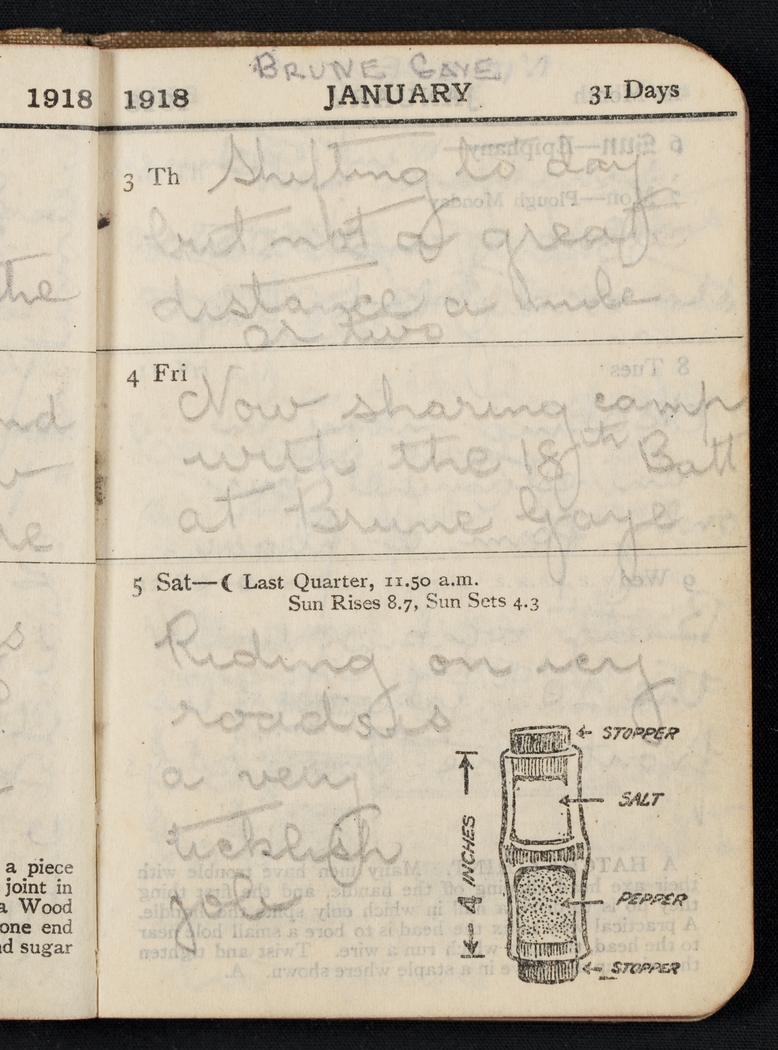 BRUNE GAYE
1918
1918 JANUARY 31 Days
3 Th Shifting to day
but not a great
distance a mile
or two
4 Fri
Now sharing camp
with the 18th Batt
at Brune Gaye
5 Sat—☾ Last Quarter, 11.50 a.m.
Sun Rises 8.7, Sun Sets 4.3
Riding on icy
roads is
a very
ticklish
job
STOPPER
SALT
4 INCHES
PEPPER
STOPPER
the
a piece
joint in
a Wood
one end
nd sugar